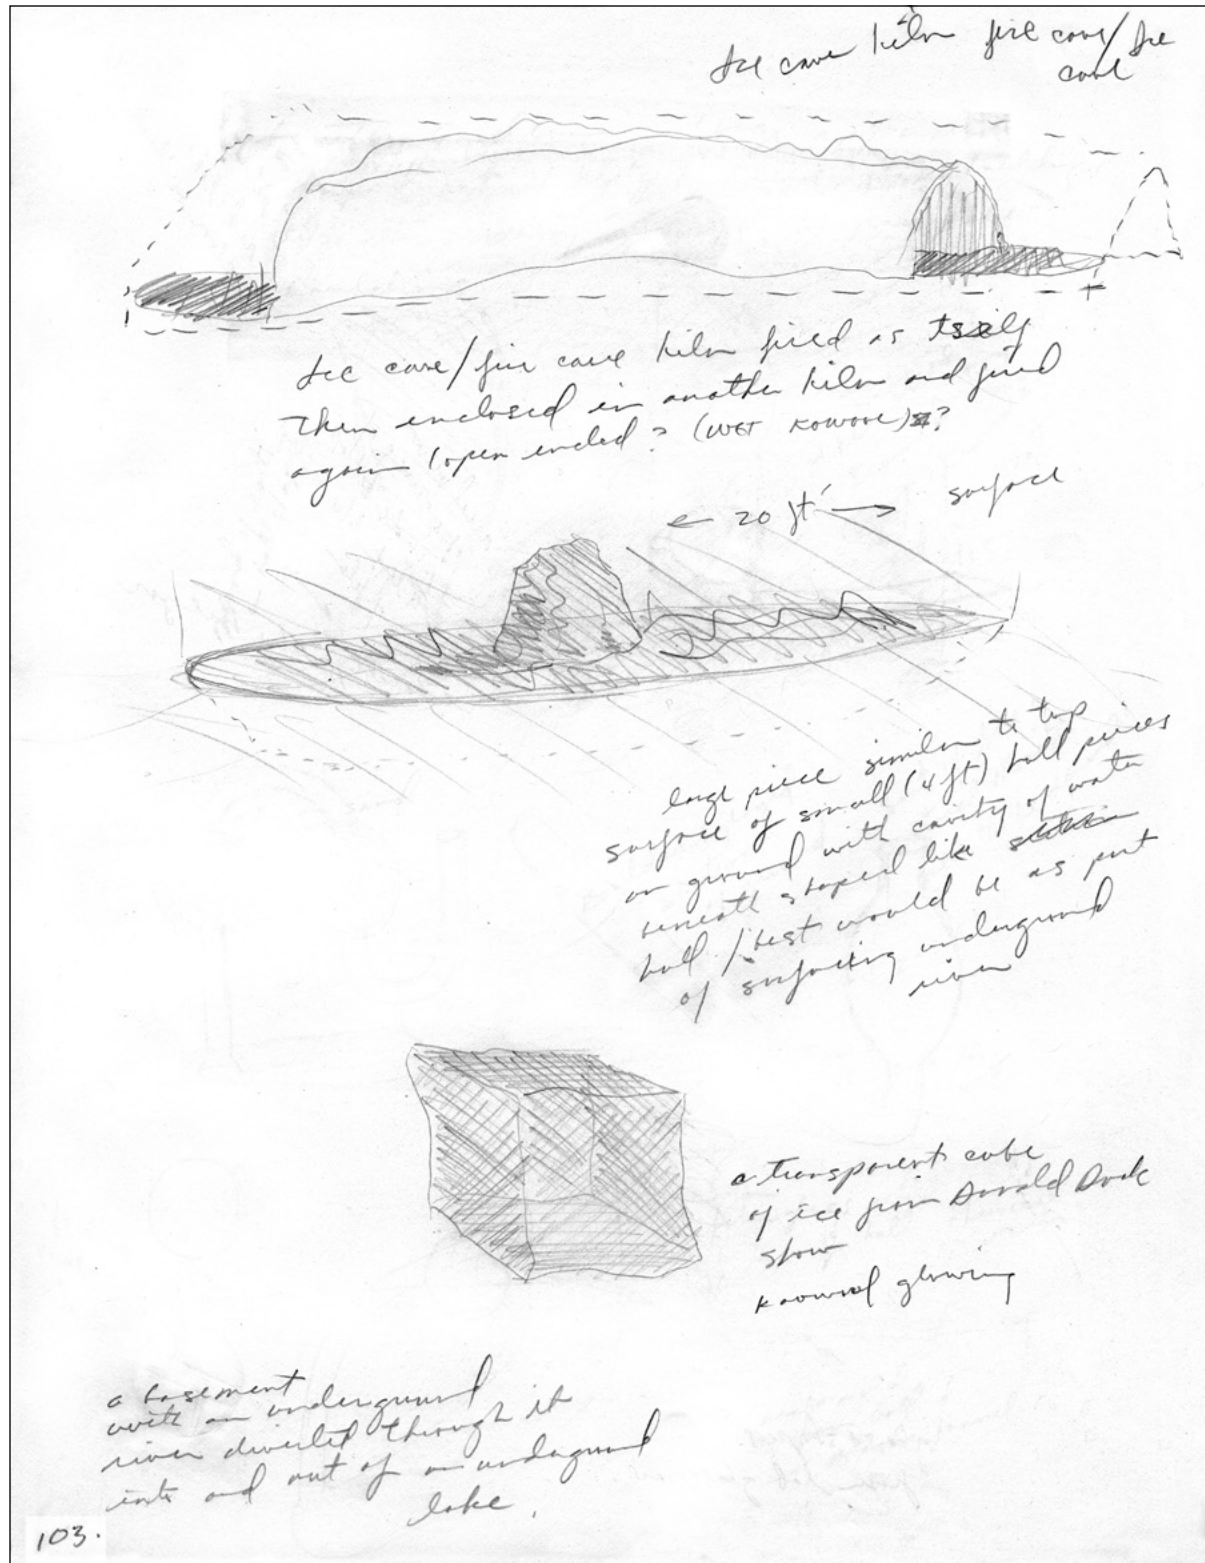 Ice cave kiln fire cave/Ice
cave
Ice cave/fire cave kiln fired as itself
then enclosed in another kiln and fired
again (open ended? (WET KOWOOL)?
← 20 ft → surface
large piece similar to top
surface of small (4 ft) ball pieces
on ground with cavity of water
beneath shaped like
ball / best would be as part
of surfacing underground
river
a transparent cube
of ice from Donald Duck
show
kaowool glowing
a basement
with an underground
river diverted through it
into and out of an underground
lake.
103.